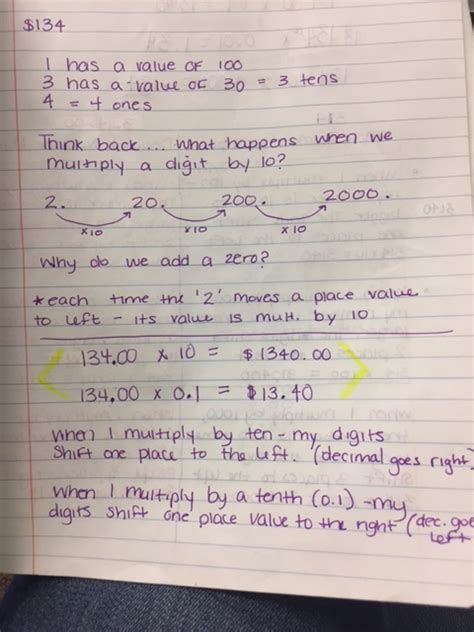 $134
1 has a value of 100
3 has a value of 30 = 3 tens
4 = 4 ones
Think back... what happens when we
multiply a digit by 10?
2. 20. 200. 2000.
x10 x10 x10
Why do we add a zero?
*each time the '2' moves a place value
to left - its value is mult. by 10
134.00 x 10 = $1340.00
134.00 x 0.1 = $13.40
When I multiply by ten - my digits
shift one place to the left. (decimal goes right)
When I multiply by a tenth (0.1) - my
digits shift one place value to the right (dec. goe
left